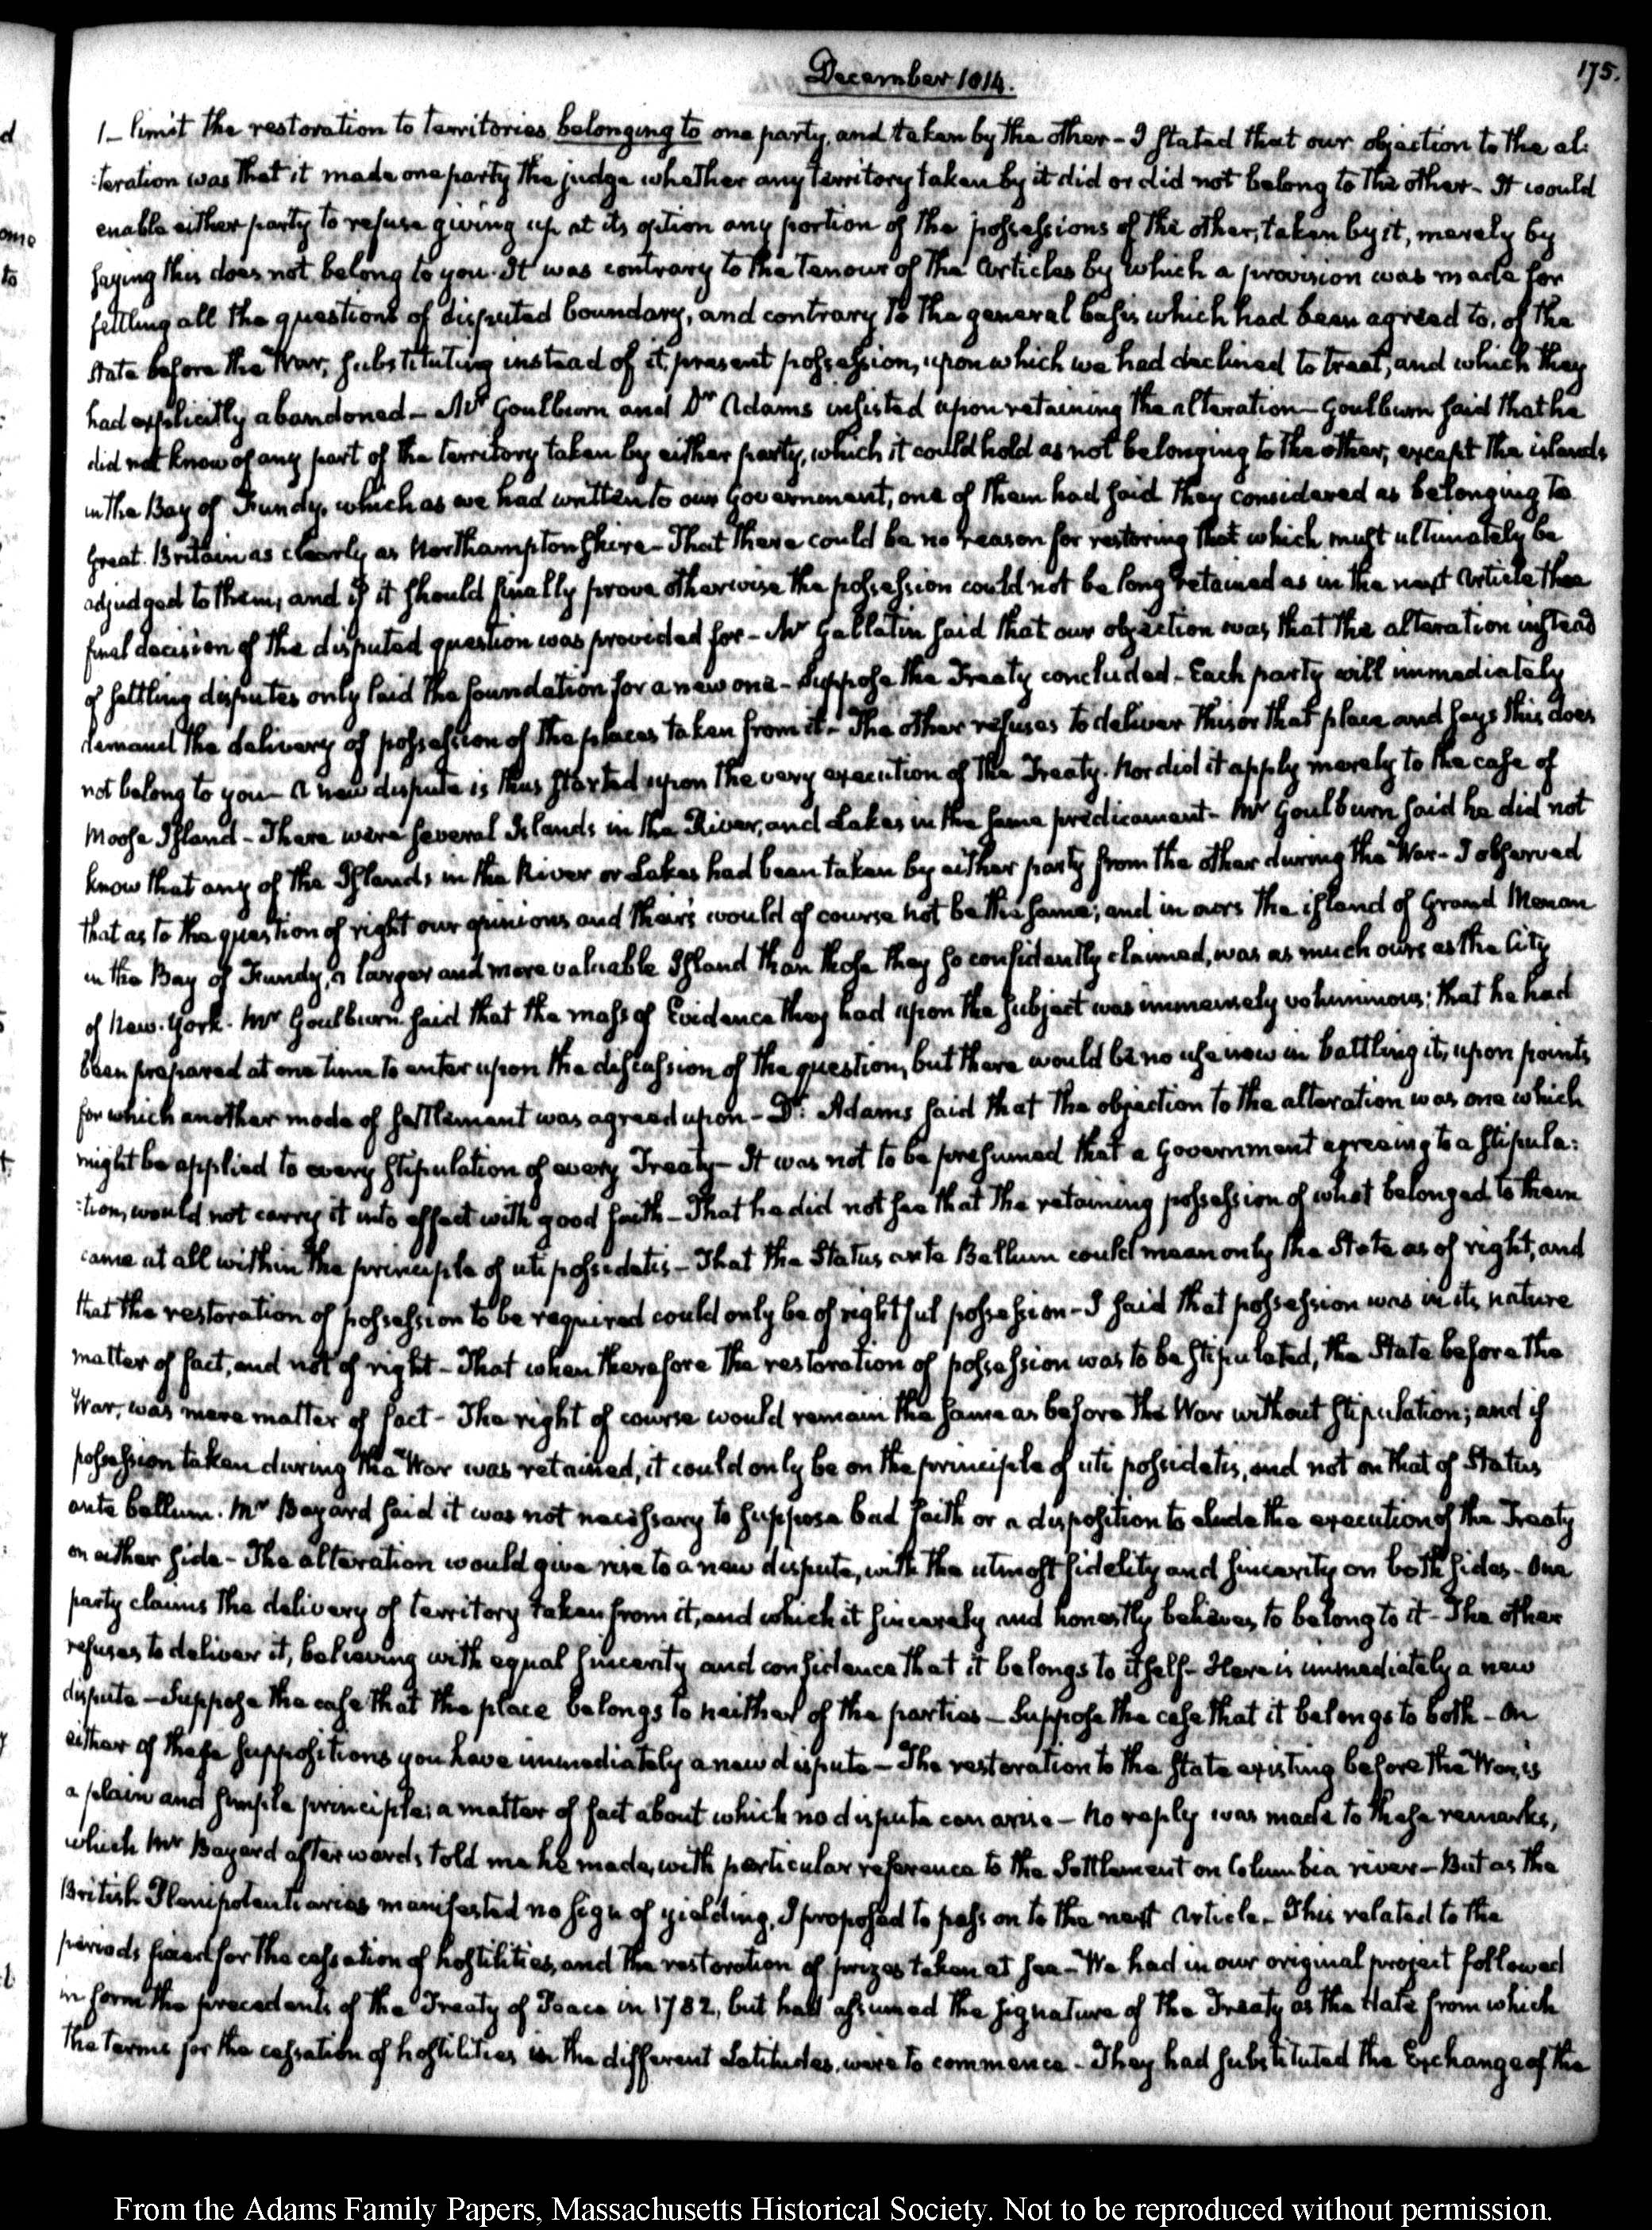 December 1814.
175.
1_ limit the restoration to territories belonging to one party, and taken by the other - I stated that our objection to the al:
:teration was that it made one party the judge whether any territory taken by it did or did not belong to the other - It would
enable either party to refuse giving up at its option any portion of the possessions of the other, taken by it, merely by
saying this does not belong to you. It was contrary to the tenour of the Articles by which a provision was made for
settling all the questions of disputed boundary, and contrary to the general basis which had been agreed to, of the
state before the War, substituting instead of it present possession, upon which we had declined to treat, and which they
had explicitly abandoned - Mr Goulburn and Dr Adams insisted upon retaining the alteration - Goulburn said that he
did not know of any part of the territory taken by either party, which it could hold as not belonging to the other, except the islands
in the Bay of Fundy, which as we had written to our Government, one of them had said they considered as belonging to
Great Britain as clearly as Northamptonshire - That there could be no reason for restoring that which must ultimately be
adjudged to them, and if it should finally prove otherwise the possession could not be long retained as in the next Article the
final decision of the disputed question was provided for - Mr Gallatin said that our objection was that the alteration instead
of settling disputes only laid the foundation for a new one - Suppose the Treaty concluded - Each party will immediately
demand the delivery of possession of the places taken from it - The other refuses to deliver this or that place and says this does
not belong to you - A new dispute is thus started upon the very execution of the Treaty. Nor did it apply merely to the case of
Moose Island - There were several Islands in the River, and Lakes in the same predicament - Mr Goulburn said he did not
know that any of the Islands in the River or Lakes had been taken by either party from the other during the War - I observed
that as to the question of right our opinions and their's would of course not be the same; and in ours the island of Grand Menan
in the Bay of Fundy, a larger and more valuable Island than those they so confidently claimed, was as much ours as the City
of New-York. Mr Goulburn said that the mass of Evidence they had upon the subject was immensely voluminous; that he had
been prepared at one time to enter upon the discussion of the question, but there would be no use now in battling it, upon points
for which another mode of settlement was agreed upon - Dr: Adams said that the objection to the alteration was one which
might be applied to every stipulation of every Treaty - It was not to be presumed that a Government agreeing to a stipula:
:tion, would not carry it into effect with good faith - That he did not see that the retaining possession of what belonged to them
came at all within the principle of uti possidetis - That the Status ante Bellum could mean only the State as of right, and
that the restoration of possession to be required could only be of rightful possession - I said that possession was in its nature
matter of fact, and not of right - That when therefore the restoration of possession was to be stipulated, the State before the
War, was mere matter of fact - The right of course would remain the same as before the War without stipulation; and if
possession taken during the War was retained, it could only be on the principle of uti possidetis, and not on that of Status
ante bellum. Mr Bayard said it was not necessary to suppose bad faith or a disposition to elude the execution of the Treaty
on either side - The alteration would give rise to a new dispute, with the utmost fidelity and sincerity on both sides - One
party claims the delivery of territory taken from it, and which it sincerely and honestly believes to belong to it - The other
refuses to deliver it, believing with equal sincerity and confidence that it belongs to itself - Here is immediately a new
dispute - Suppose the case that the place belongs to neither of the parties - Suppose the case that it belongs to both - On
either of these suppositions you have immediately a new dispute - The restoration to the state existing before the War, is
a plain and simple principle; a matter of fact about which no dispute can arise - No reply was made to these remarks,
which Mr Bayard afterwards told me he made, with particular reference to the Settlement on Columbia river - But as the
British Plenipotentiaries manifested no sign of yielding, I proposed to pass on to the next Article - This related to the
periods fixed for the cessation of hostilities, and the restoration of prizes taken at sea - We had in our original project followed
in form the precedents of the Treaty of Peace in 1782, but had assumed the signature of the Treaty as the date from which
the terms for the cessation of hostilities in the different Latitudes, were to commence - They had substituted the Exchange of the
d
ome
to
t
From the Adams Family Papers, Massachusetts Historical Society. Not to be reproduced without permission.